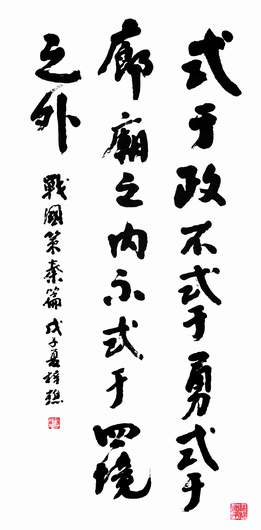 式于政不式于勇式于
廊廟之内不式于四境
之外
戰國策秦篇戊子夏梓樵